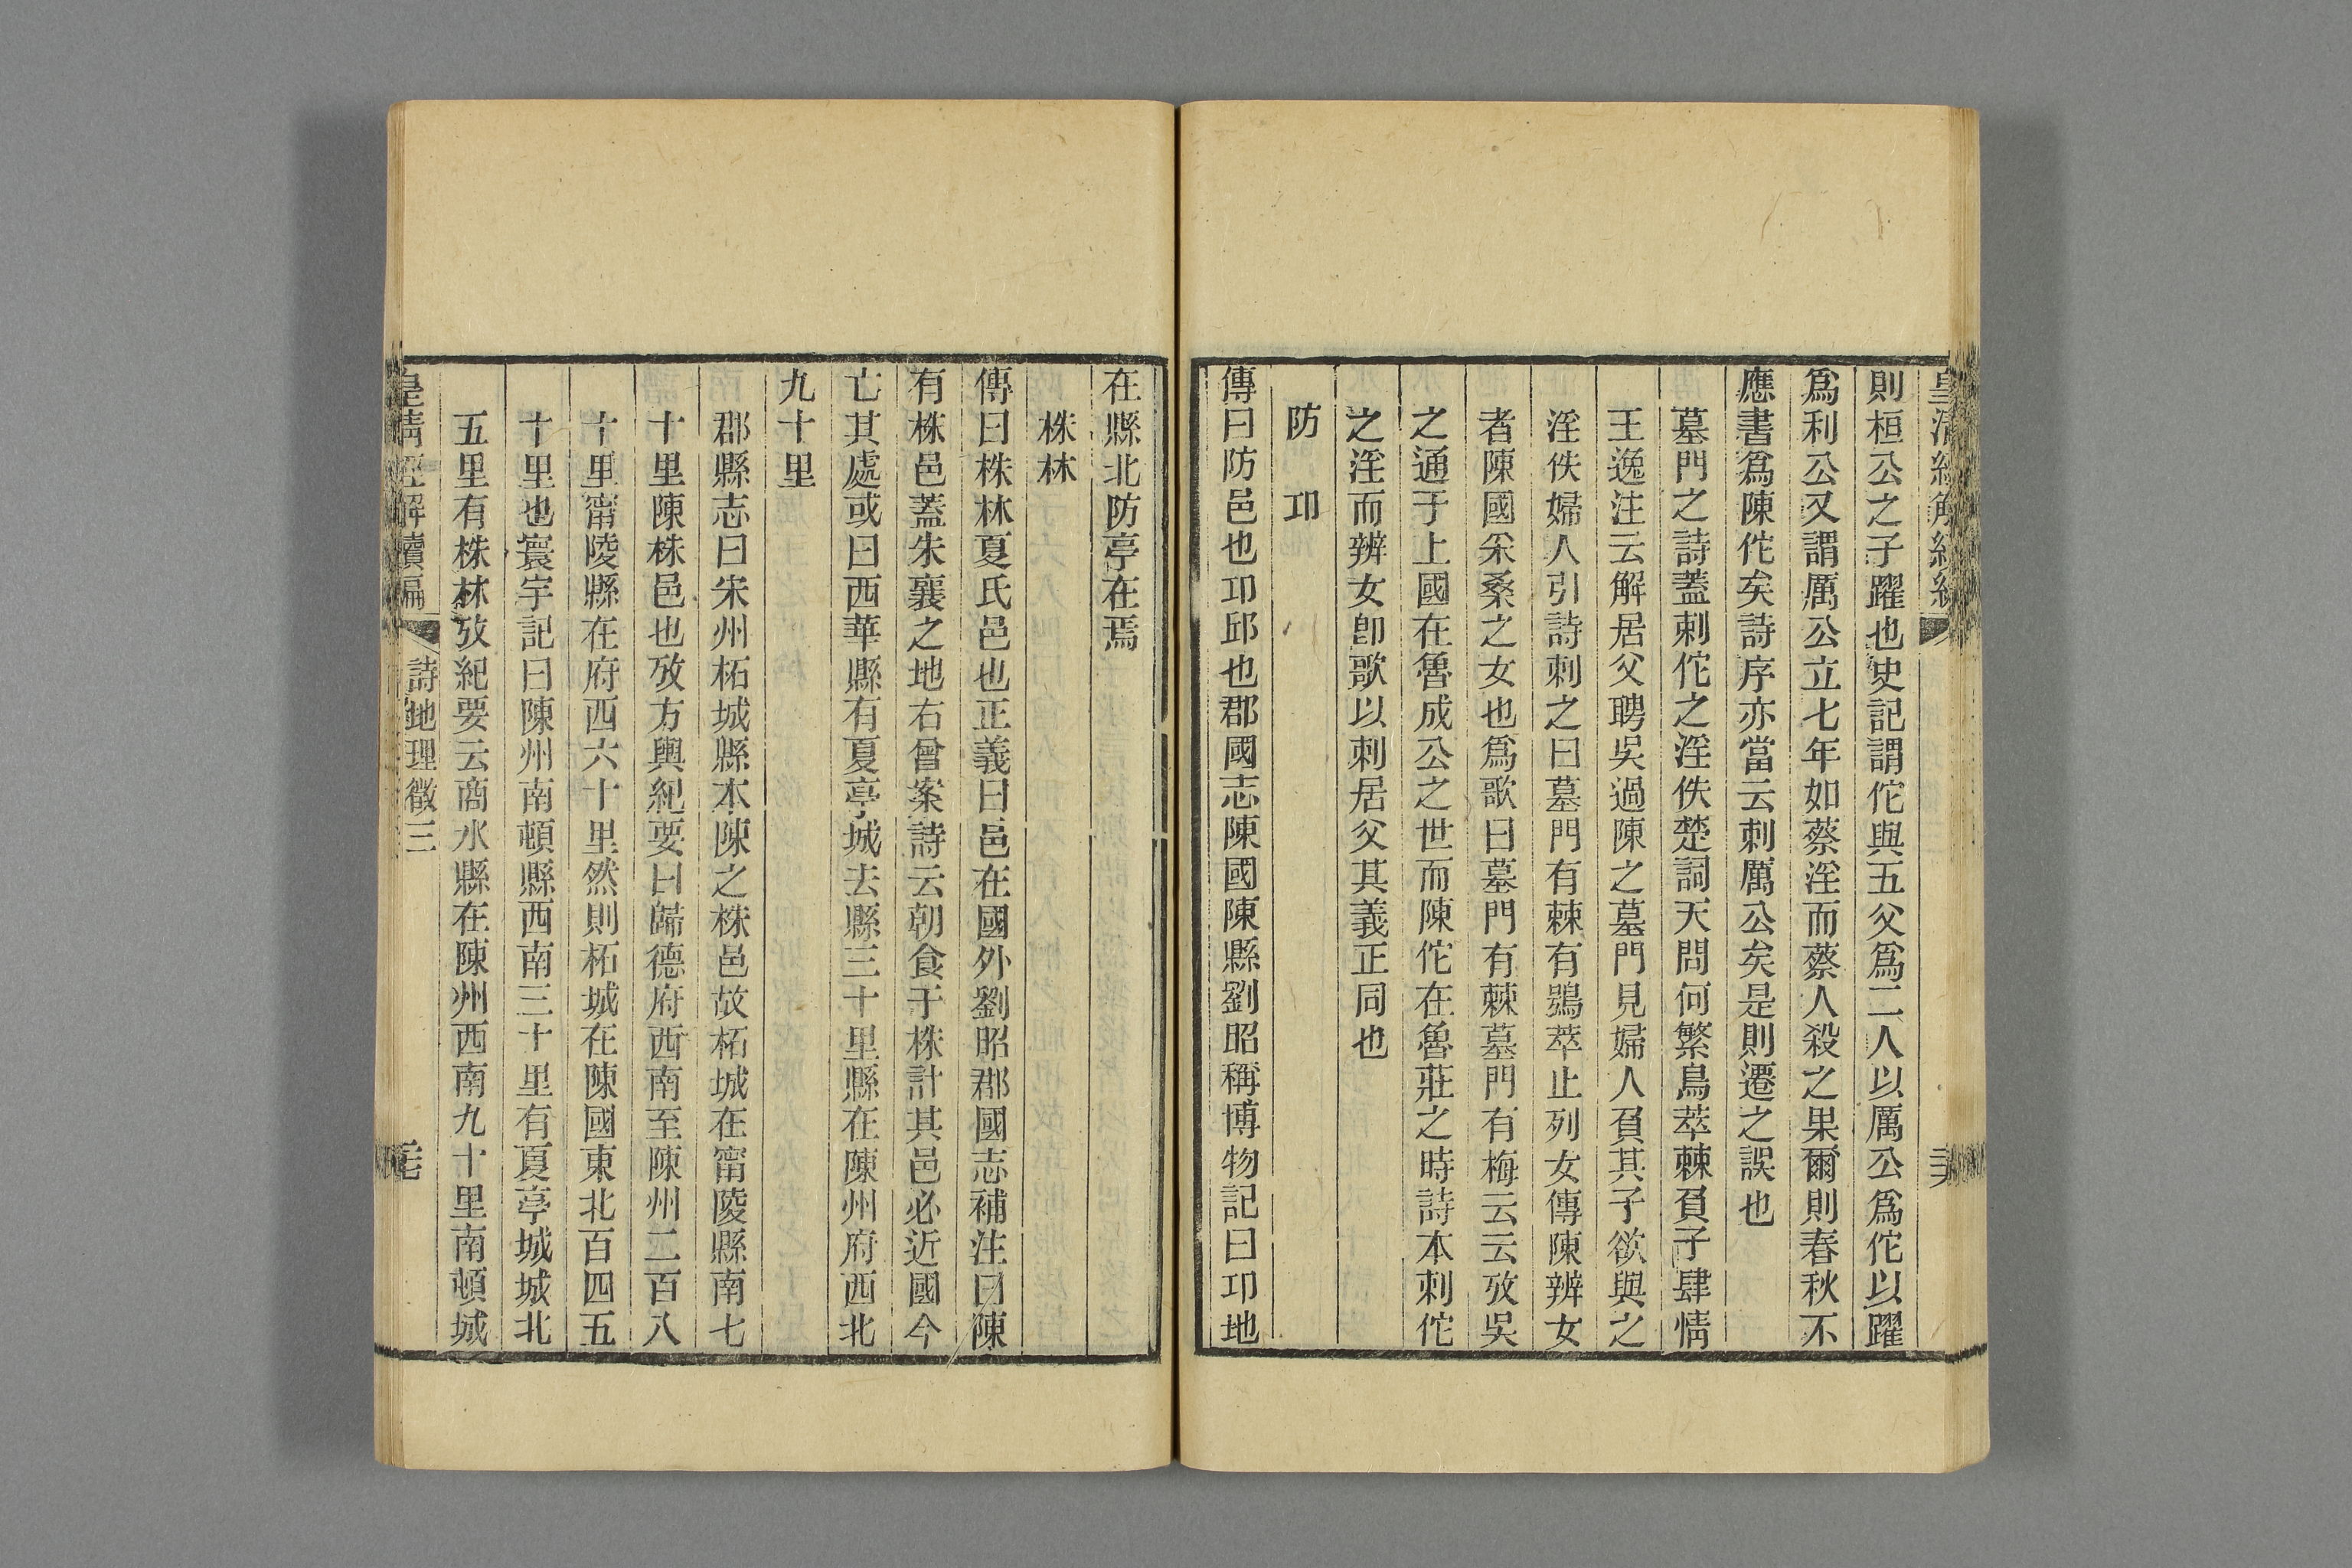 皇清經解續編
二十六
則桓公之子躍也史記謂佗與五父爲二人以厲公爲佗以躍
爲利公又謂厲公立七年如蔡淫而蔡人殺之果爾則春秋不
應書爲陳佗矣詩序亦當云刺厲公矣是則遷之誤也
墓門之詩蓋刺佗之淫佚楚詞天問何繁鳥萃棘負子肆情
王逸注云解居父聘吳過陳之墓門見婦人負其子欲與之
淫佚婦人引詩刺之曰墓門有棘有鴞萃止列女傳陳辨女
者陳國采桑之女也爲歌曰墓門有棘墓門有梅云云攷吳
之通于上國在魯成公之世而陳佗在魯莊之時詩本刺佗
之淫而辨女卽歌以刺居父其義正同也
防　卭
傳曰防邑也卭邱也郡國志陳國陳縣劉昭稱博物記曰卭地
在縣北防亭在焉
株林
傳曰株林夏氏邑也正義曰邑在國外劉昭郡國志補注曰陳
有株邑蓋朱襄之地右曾案詩云朝食于株計其邑必近國今
亡其處或曰西華縣有夏亭城去縣三十里縣在陳州府西北
九十里
郡縣志曰宋州柘城縣本陳之株邑故柘城在甯陵縣南七
十里陳株邑也攷方輿紀要曰歸德府西南至陳州二百八
十里甯陵縣在府西六十里然則柘城在陳國東北百四五
十里也寰宇記曰陳州南頓縣西南三十里有夏亭城城北
五里有株林攷紀要云商水縣在陳州西南九十里南頓城
皇清經解續編
詩地理徵三
二十七